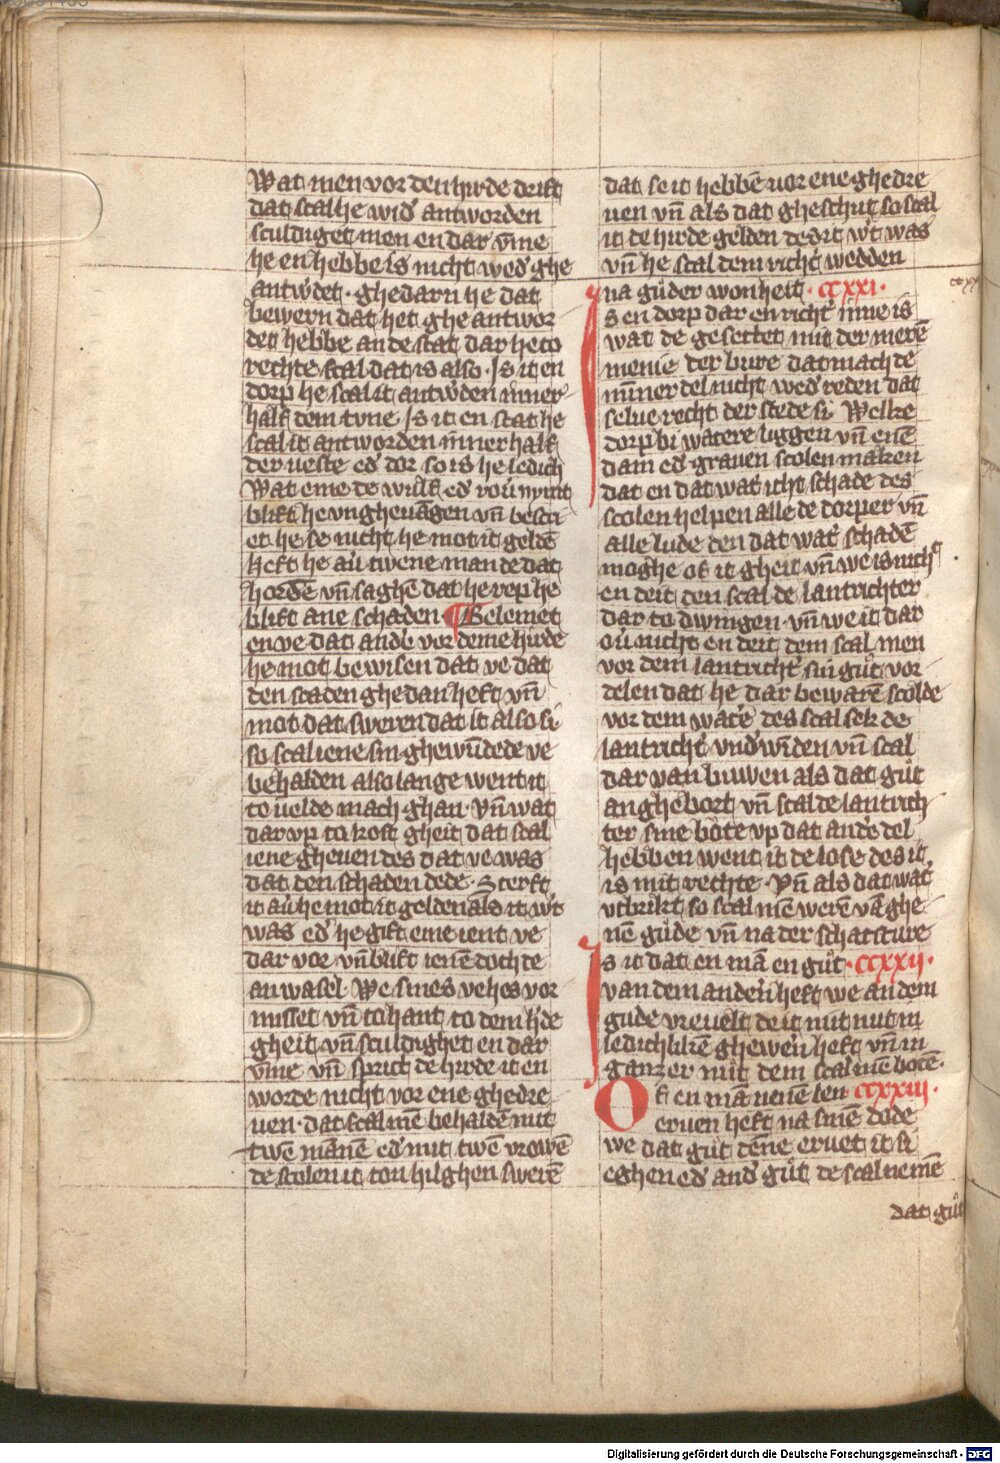 Wat men vor den hirde drift
dat scal he wid᷒ antworden
sculdiget men en dar v̄me
he en hebbe is nicht wed᷒ ghe
antw᷒det · ghedarn he dat
bewern dat het ghe antwor
det hebbe an de stat dar he to
rechte scal dat is also · Is it en
dorp he scal it antw᷒den inner
half dem tvne Is it en stat he
scal it antworden inner half
der veste ed᷒ dor so is he ledich
Wat eme de wulf ed᷒ rou᷒ nymt
blift he vngheuāgen vn̄ bescri
et he se nicht he mot it geldē
Heft he au᷒ twene man de dat
hordē vn̄ saghē dat he rep he
blift ane schaden ¶ Belemet
en ve dat and᷒e vor deme hirde
he mot bewisen dat ve dat
den scaden ghedan heft vn̄
mot dat sweren dat it also si
so scal iene sin ghewūdede ve
behalden also lange went it
to velde mach ghan · Vn̄ wat
dar vp to kost gheit dat scal
iene gheuen des dat ve was
dat den schaden dede · Sterft
it au᷒ he mot it gelden als it w᷒t
was ed᷒ he gift eme ient ve
dar voe vn̄ blift ienē doch de
an wasel We sines vehes vor
misset vn̄ to hant to dem h᷒de
gheit vn̄ sculdighet en dar
v̄me vn̄ sprict de hirde it en
worde nicht vor ene ghedre
uen · dat scal mē behaldē mit
twē mānē ed᷒ mit twē vrowē
de scolen it ton hilghen swerē
dat se it hebbē vor ene ghedre
uen vn̄ als dat gheschut so scal
it de hirde gelden de dit w᷒t was
vn̄ he scal dem richt᷒ wedden
na gud᷒er wonheit · ccxxi ·
Is en dorp dar en richt᷒ inne is
wat de gesettet mit der merē
menie der bure dat mach de
minner del nicht wed᷒ reden dat
selue recht der stede si Welke
dorp bi watere liggen vn̄ enē
dam ed᷒ grauen scolen maken
dat en dat wat᷒ icht schade des
scolen helpen alle de dorper vn̄
alle lude den dat wat᷒ schadē
moghe of it gheit vn̄ we is nich
en deit den scal de lantrichter
dar to dwingen · vn̄ we it dar
ou᷒ nicht en deit dem scal men
vor dem lantricht᷒ sin gut vor
delen dat he dar bewarē scolde
vor dem wat᷒e des scal sek de
lantricht᷒ vnd᷒winden vn̄ scal
dar van buwen als dat gut
an ghebort vn̄ scal de lantrich
ter sine bote vp dat and᷒e del
hebben went it de lose des it
is mit rechte · Vn̄ als dat wat᷒
vtbrikt so scal mē werē vā ghe
nē gude vn̄ na der schatture
Is it dat en mā en gut · ccxxii ·
van dem anderen heft we an dem
gude vreuelt de it mit nut in
ledichliē ghewern heft vn̄ in
ganzer mit dem scal mē botē ·
Of en mā nenē len ccxxiii ·
eruen heft na sinē dode
we dat gut dēne eruet it si
eghen ed᷒ and᷒ gut de scal nemē
dat gut